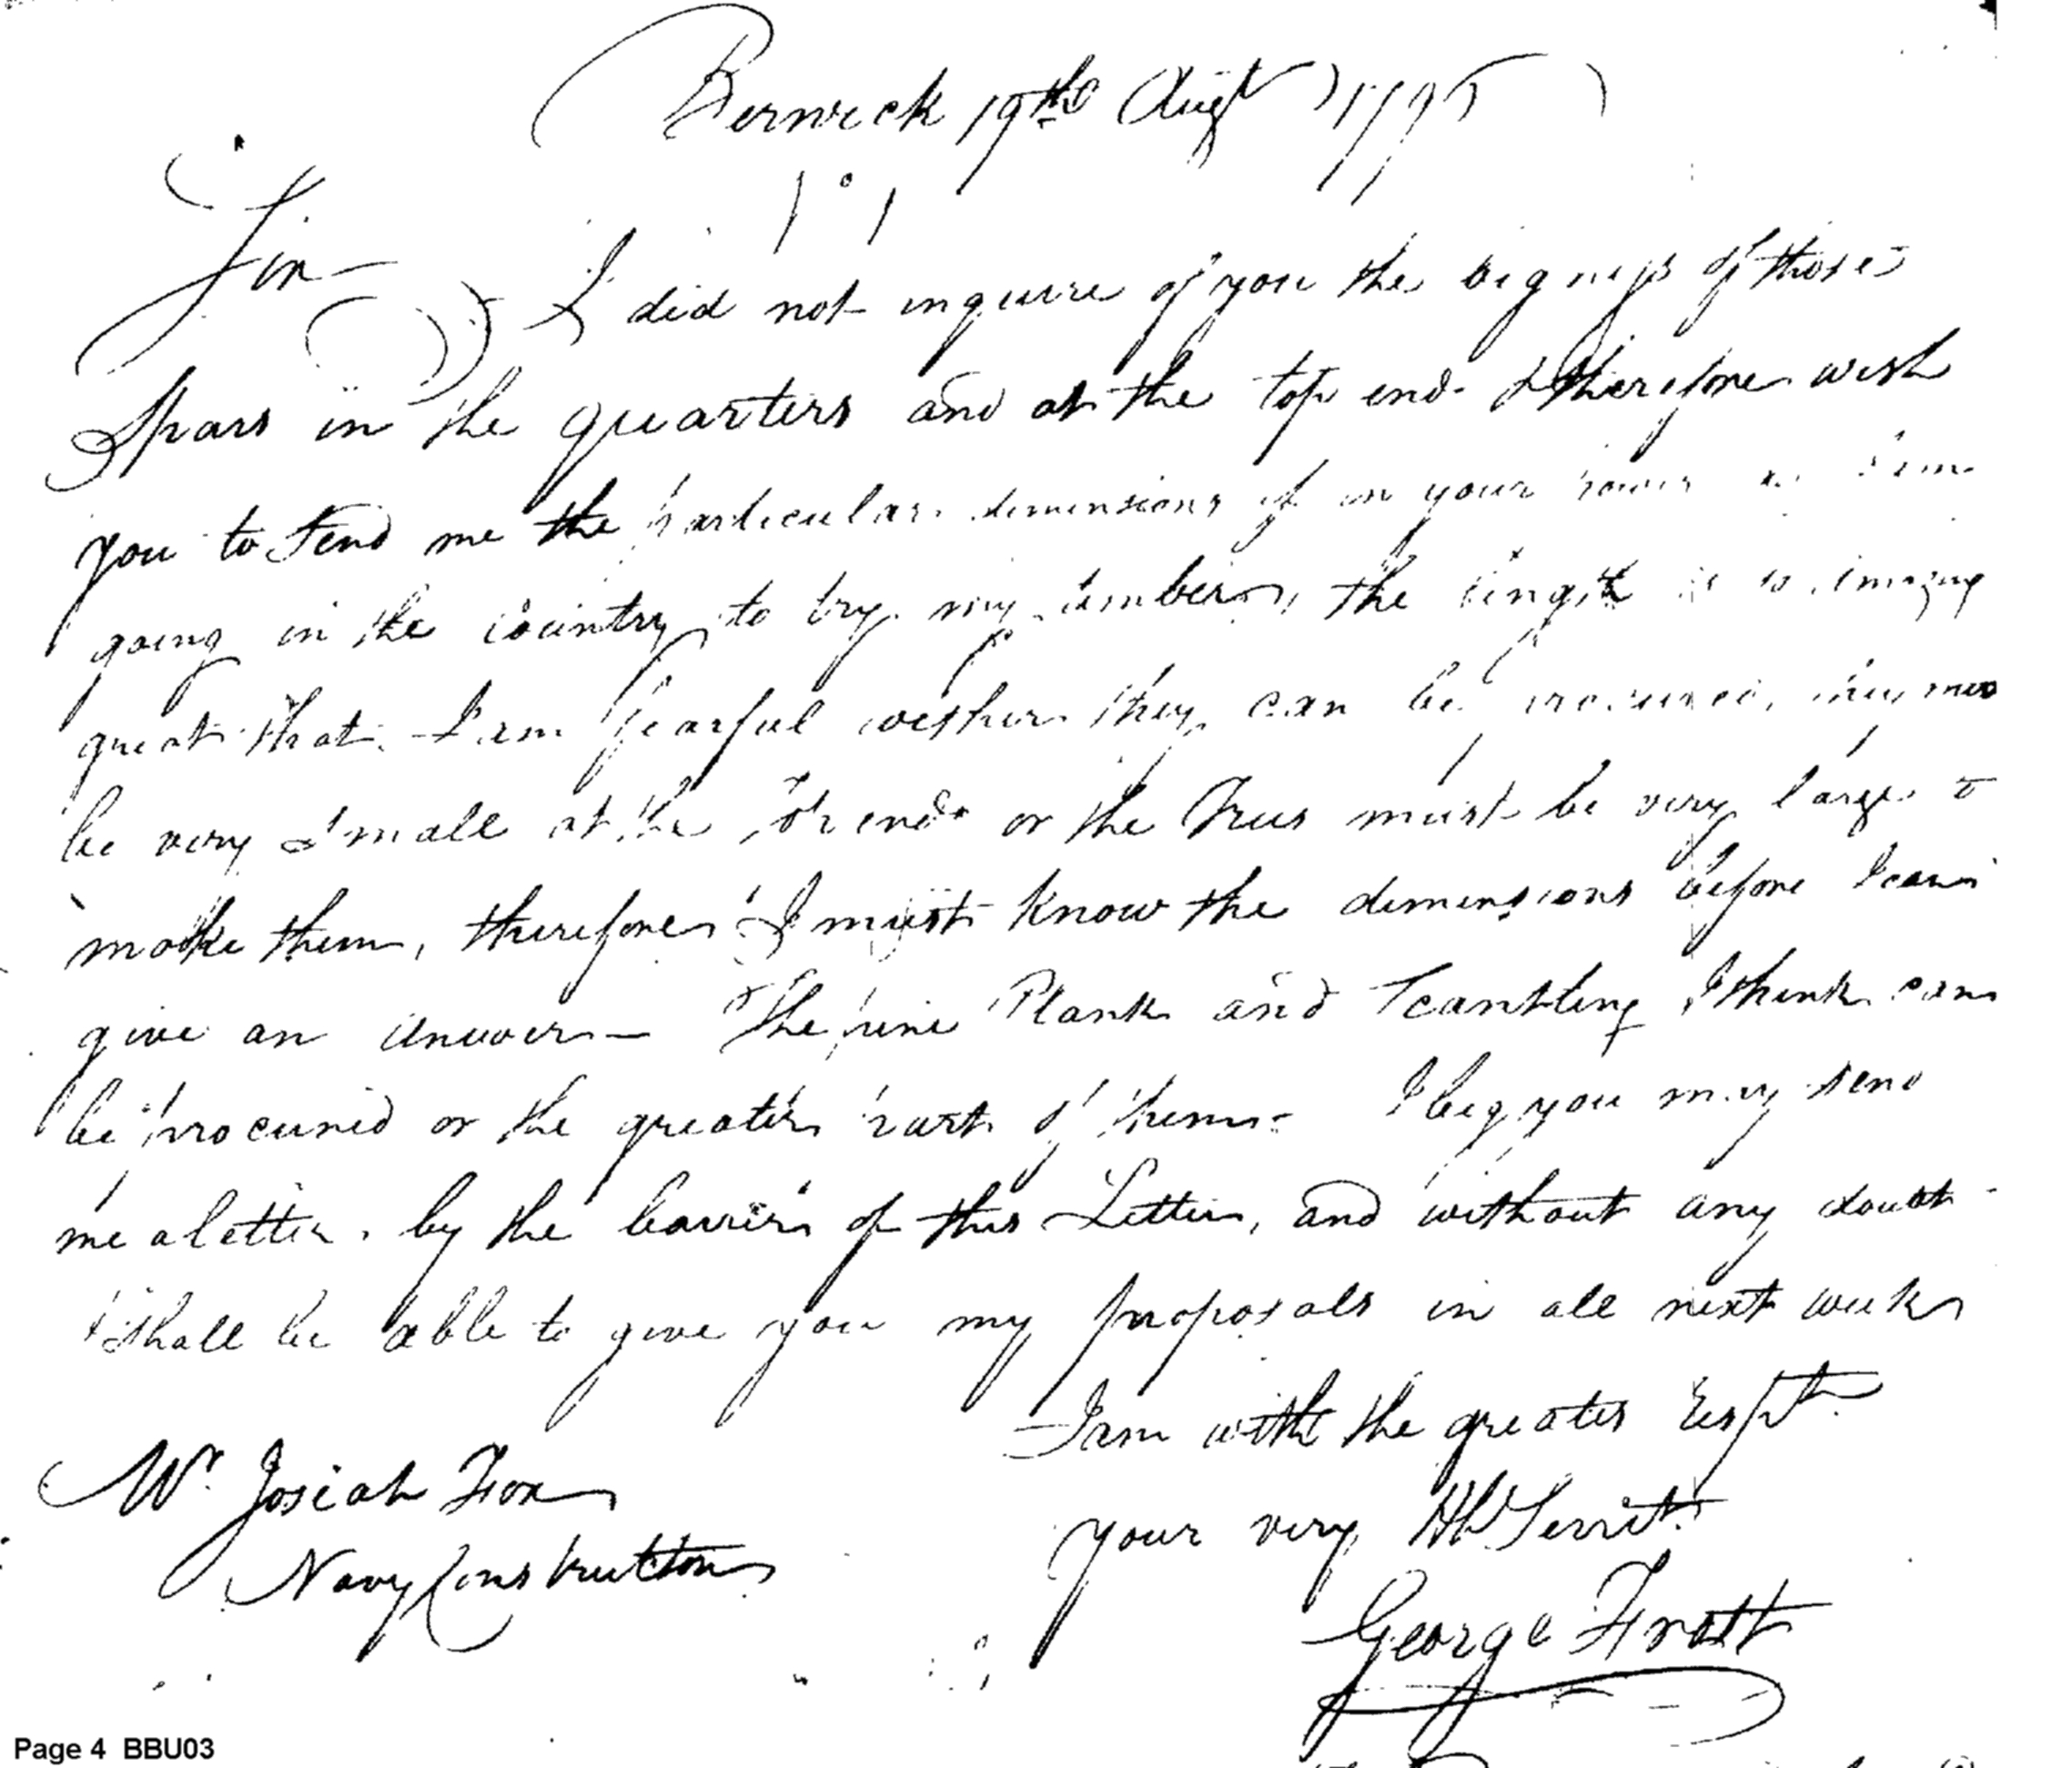 Berwick 19th Augt 1795
Sir—
I did not inquire of you the bigness of those
Spars in the quarters and at the top end I therefore wish
you to Send me the particular dimensions if in your power as I am
going in the country to try my timber, the length is so amazing
great that I am fearful wether they can be procured, they must
be very Small at the Top end or the Trees must be very large to
make them, therefore I must know the dimensions before I can
give an answer— The pine Plank and Scantling I think can
be procured or the greater part of them— I beg you may send
me a letter by the bearer of this Letter, and without any doubt
I shall be able to give you my proposals in all next week
I am with the greates Respt.
your very Hb Servt.
George Frost
Mr. Josiah Fox
Navy Constructor
Page 4 BBU03